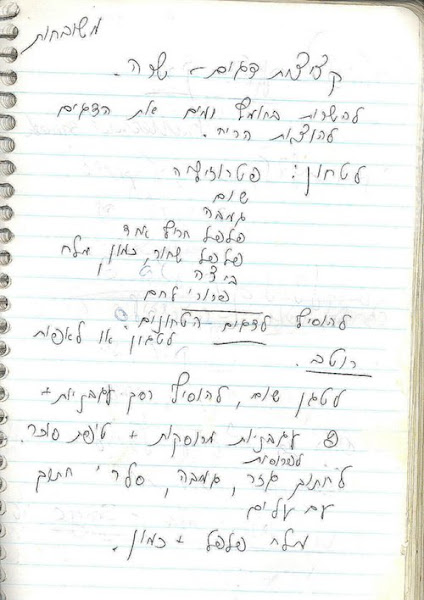 משובחות
קציצות דגים - שרה.
להשרות בחומץ ומים את הדגים
להוצאת הריח.
לטחון: פטרוזיליה
שום
גמבה
פלפל חריף אחד
פלפל שחור, כמון, מלח
ביצה
פרורי לחם
להוסיף לדגים הטחונים.
לטגן או לאפות
רוטב.
לטגן שום, להוסיף רסק עגבניות +
עגבניות מרוסקות + טיפת סוכר.
לפרוסות
לחתוך גזר, גמבה, סלרי חתוך
עם עלים
מלח פלפל + כמון.